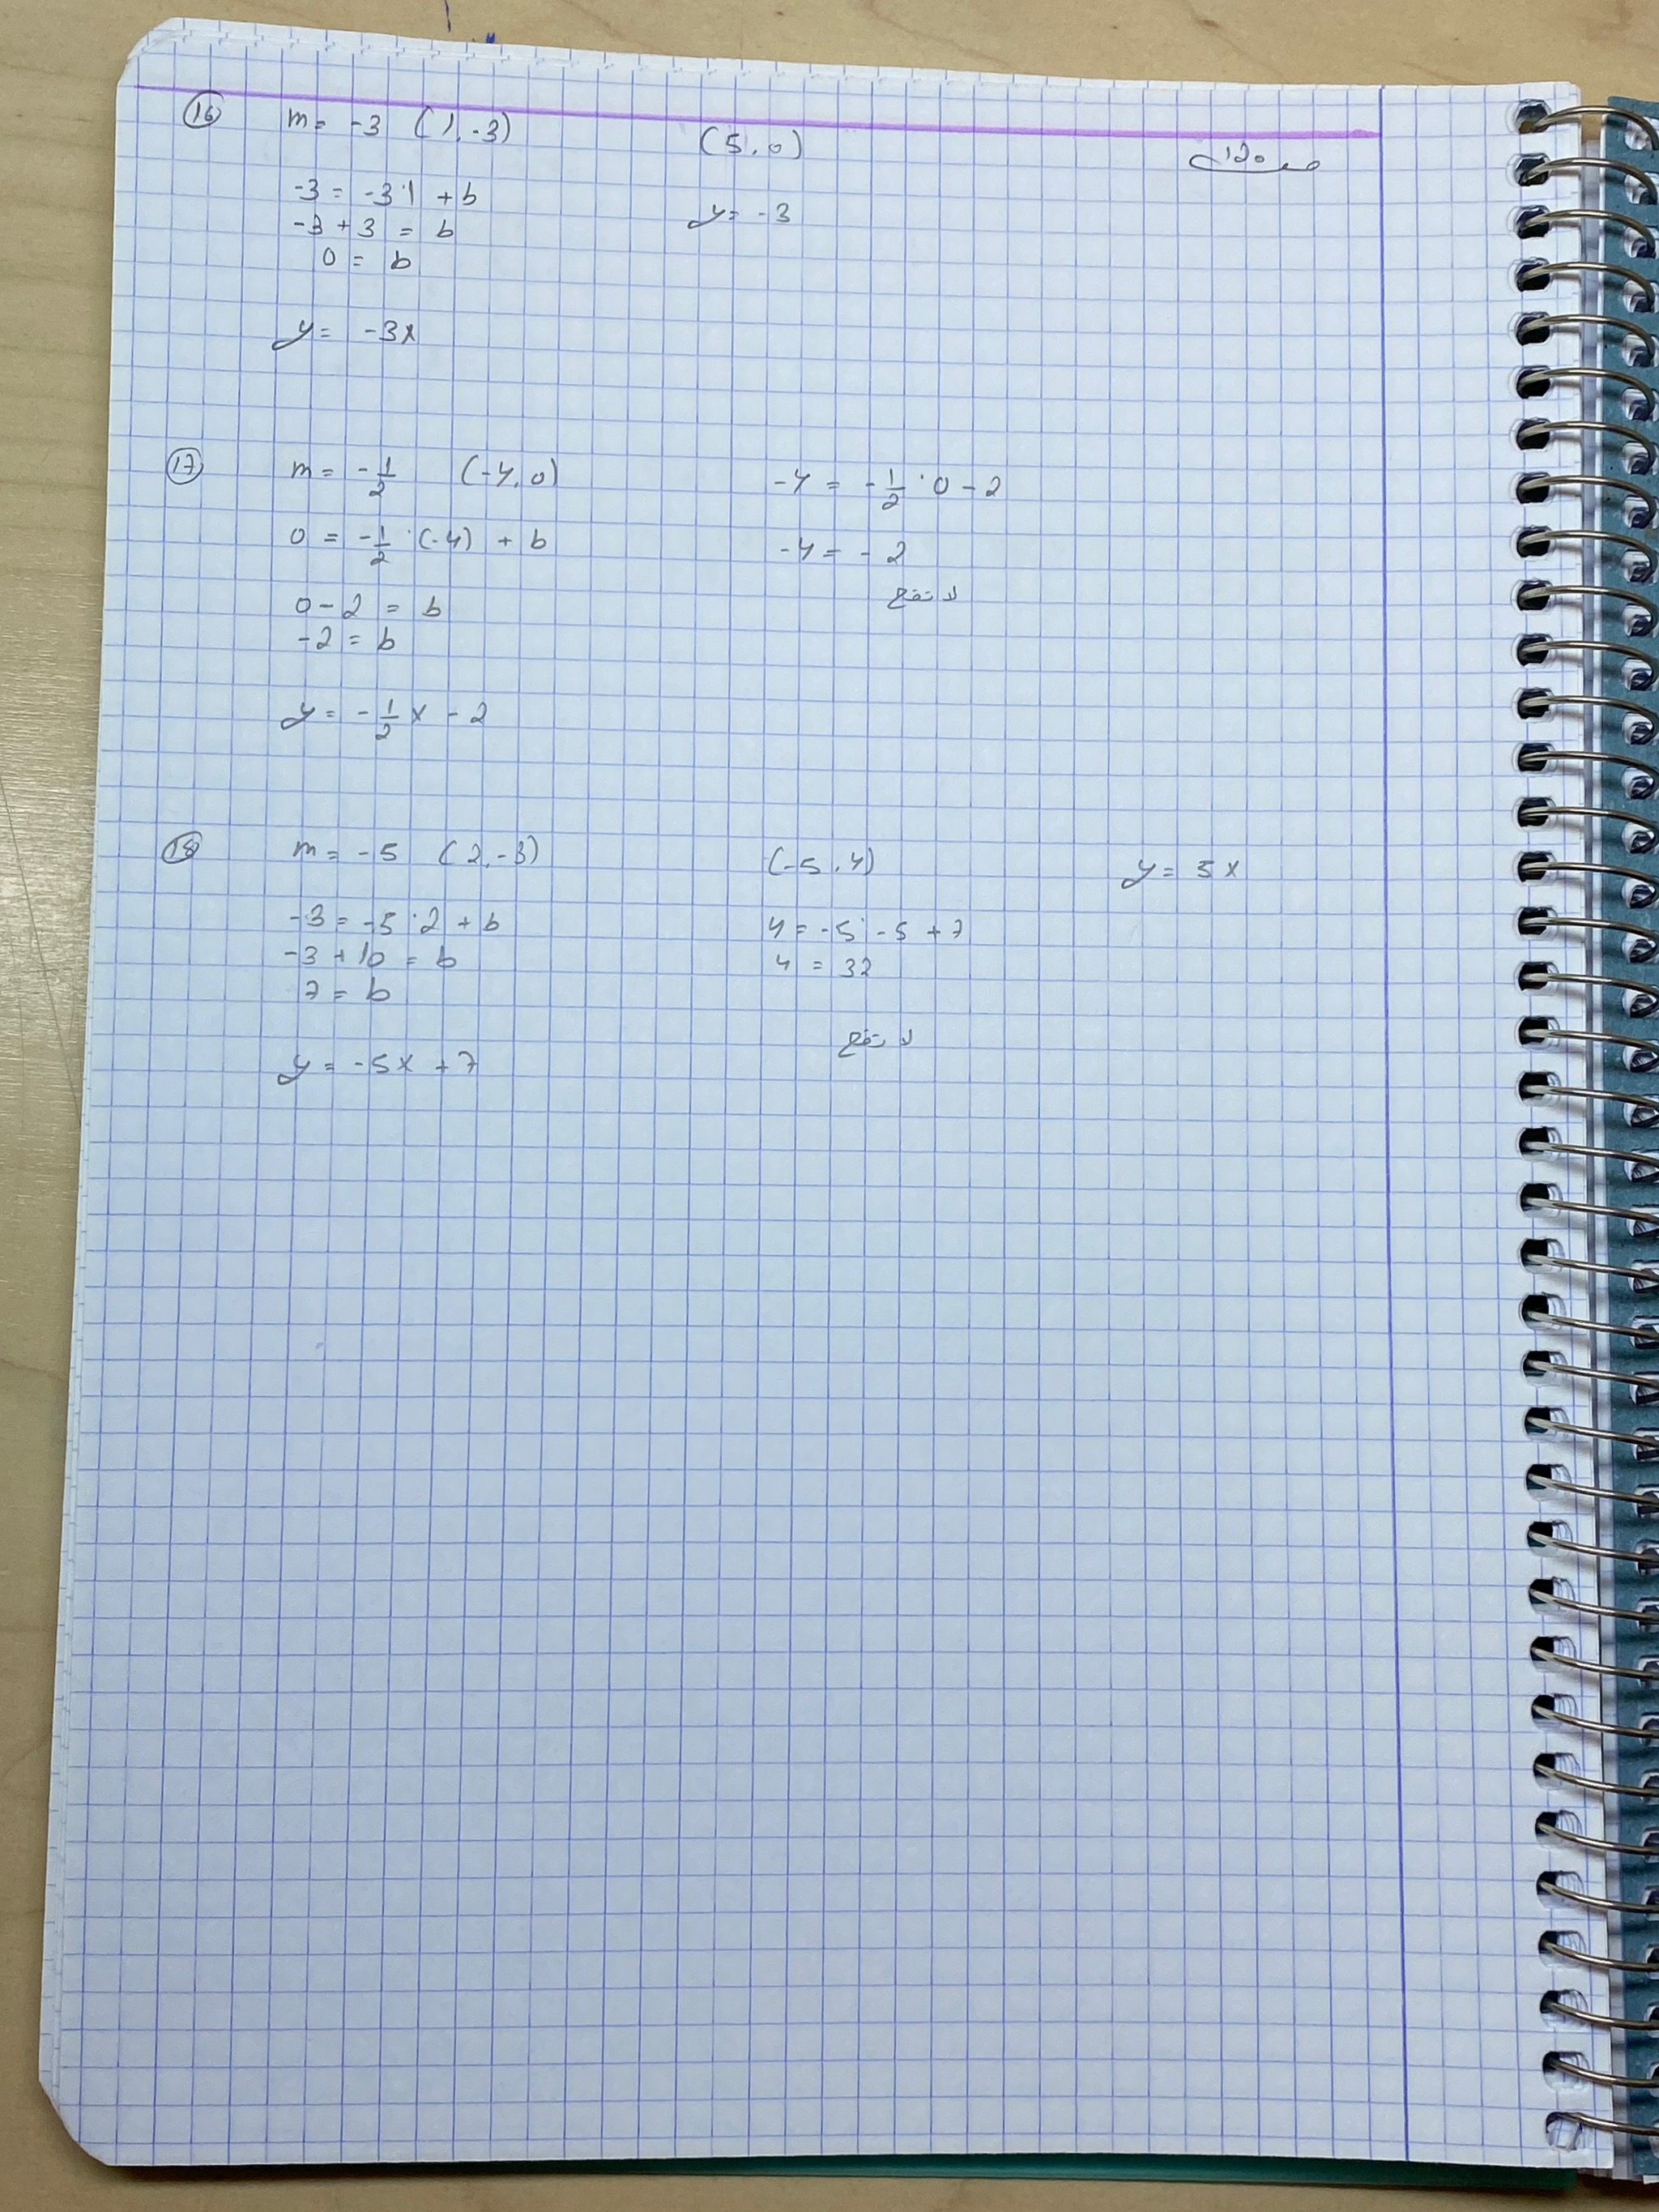 ص 120
16 m = -3 (1, -3)
-3 = -3·1 + b
-3 + 3 = b
0 = b
y = -3x
(5, 0)
y = -3
17 m = -1/2 (-4, 0)
0 = -1/2 · (-4) + b
0 - 2 = b
-2 = b
y = -1/2 x - 2
-4 = -1/2 · 0 - 2
-4 = -2
لا تقع
18 m = -5 (2, -3)
-3 = -5·2 + b
-3 + 10 = b
7 = b
y = -5x + 7
(-5, 4)
4 = -5·-5 + 7
4 = 32
لا تقع
y = 5x